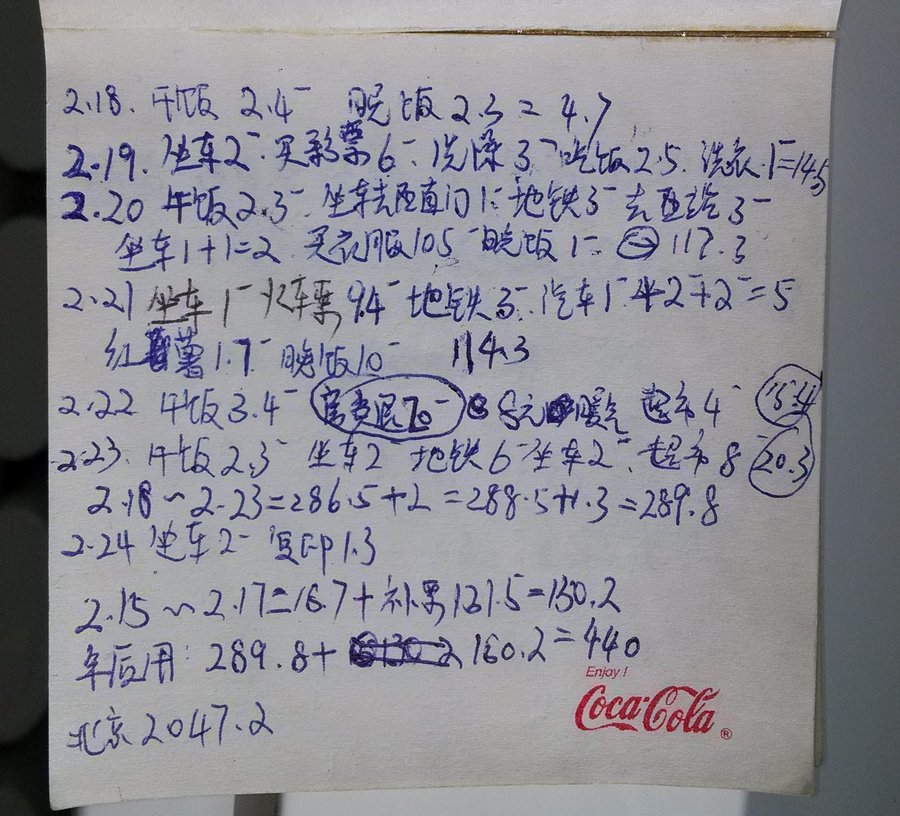 2.18. 午饭 2.4- 晚饭 2.3 = 4.7
2.19. 坐车2-. 买彩票6-. 洗澡3- 吃饭2.5. 洗衣.1-=14.5
2.20 午饭2.3-. 坐车去西直门1-. 地铁3- 去 3-
坐车1+1=2. 买衣服105- 晚饭1-. 117.3
2.21 坐车1- 火车票94- 地铁3-. 汽车1-+2-+2-=5
红薯1.7- 晚饭10- 114.3
2.22 午饭3.4- 70- 暖气 超市4- 15.4
2.23. 午饭2.3- 坐车2 地铁6- 坐车2-. 超市8- 20.3
2.18~2.23=286.5+2=288.5+1.3=289.8
2.24 坐车2- 复印1.3
2.15~2.17=18.7+补票131.5=150.2
年后用: 289.8+150.2=440
北京2047.2
Enjoy!
Coca-Cola®